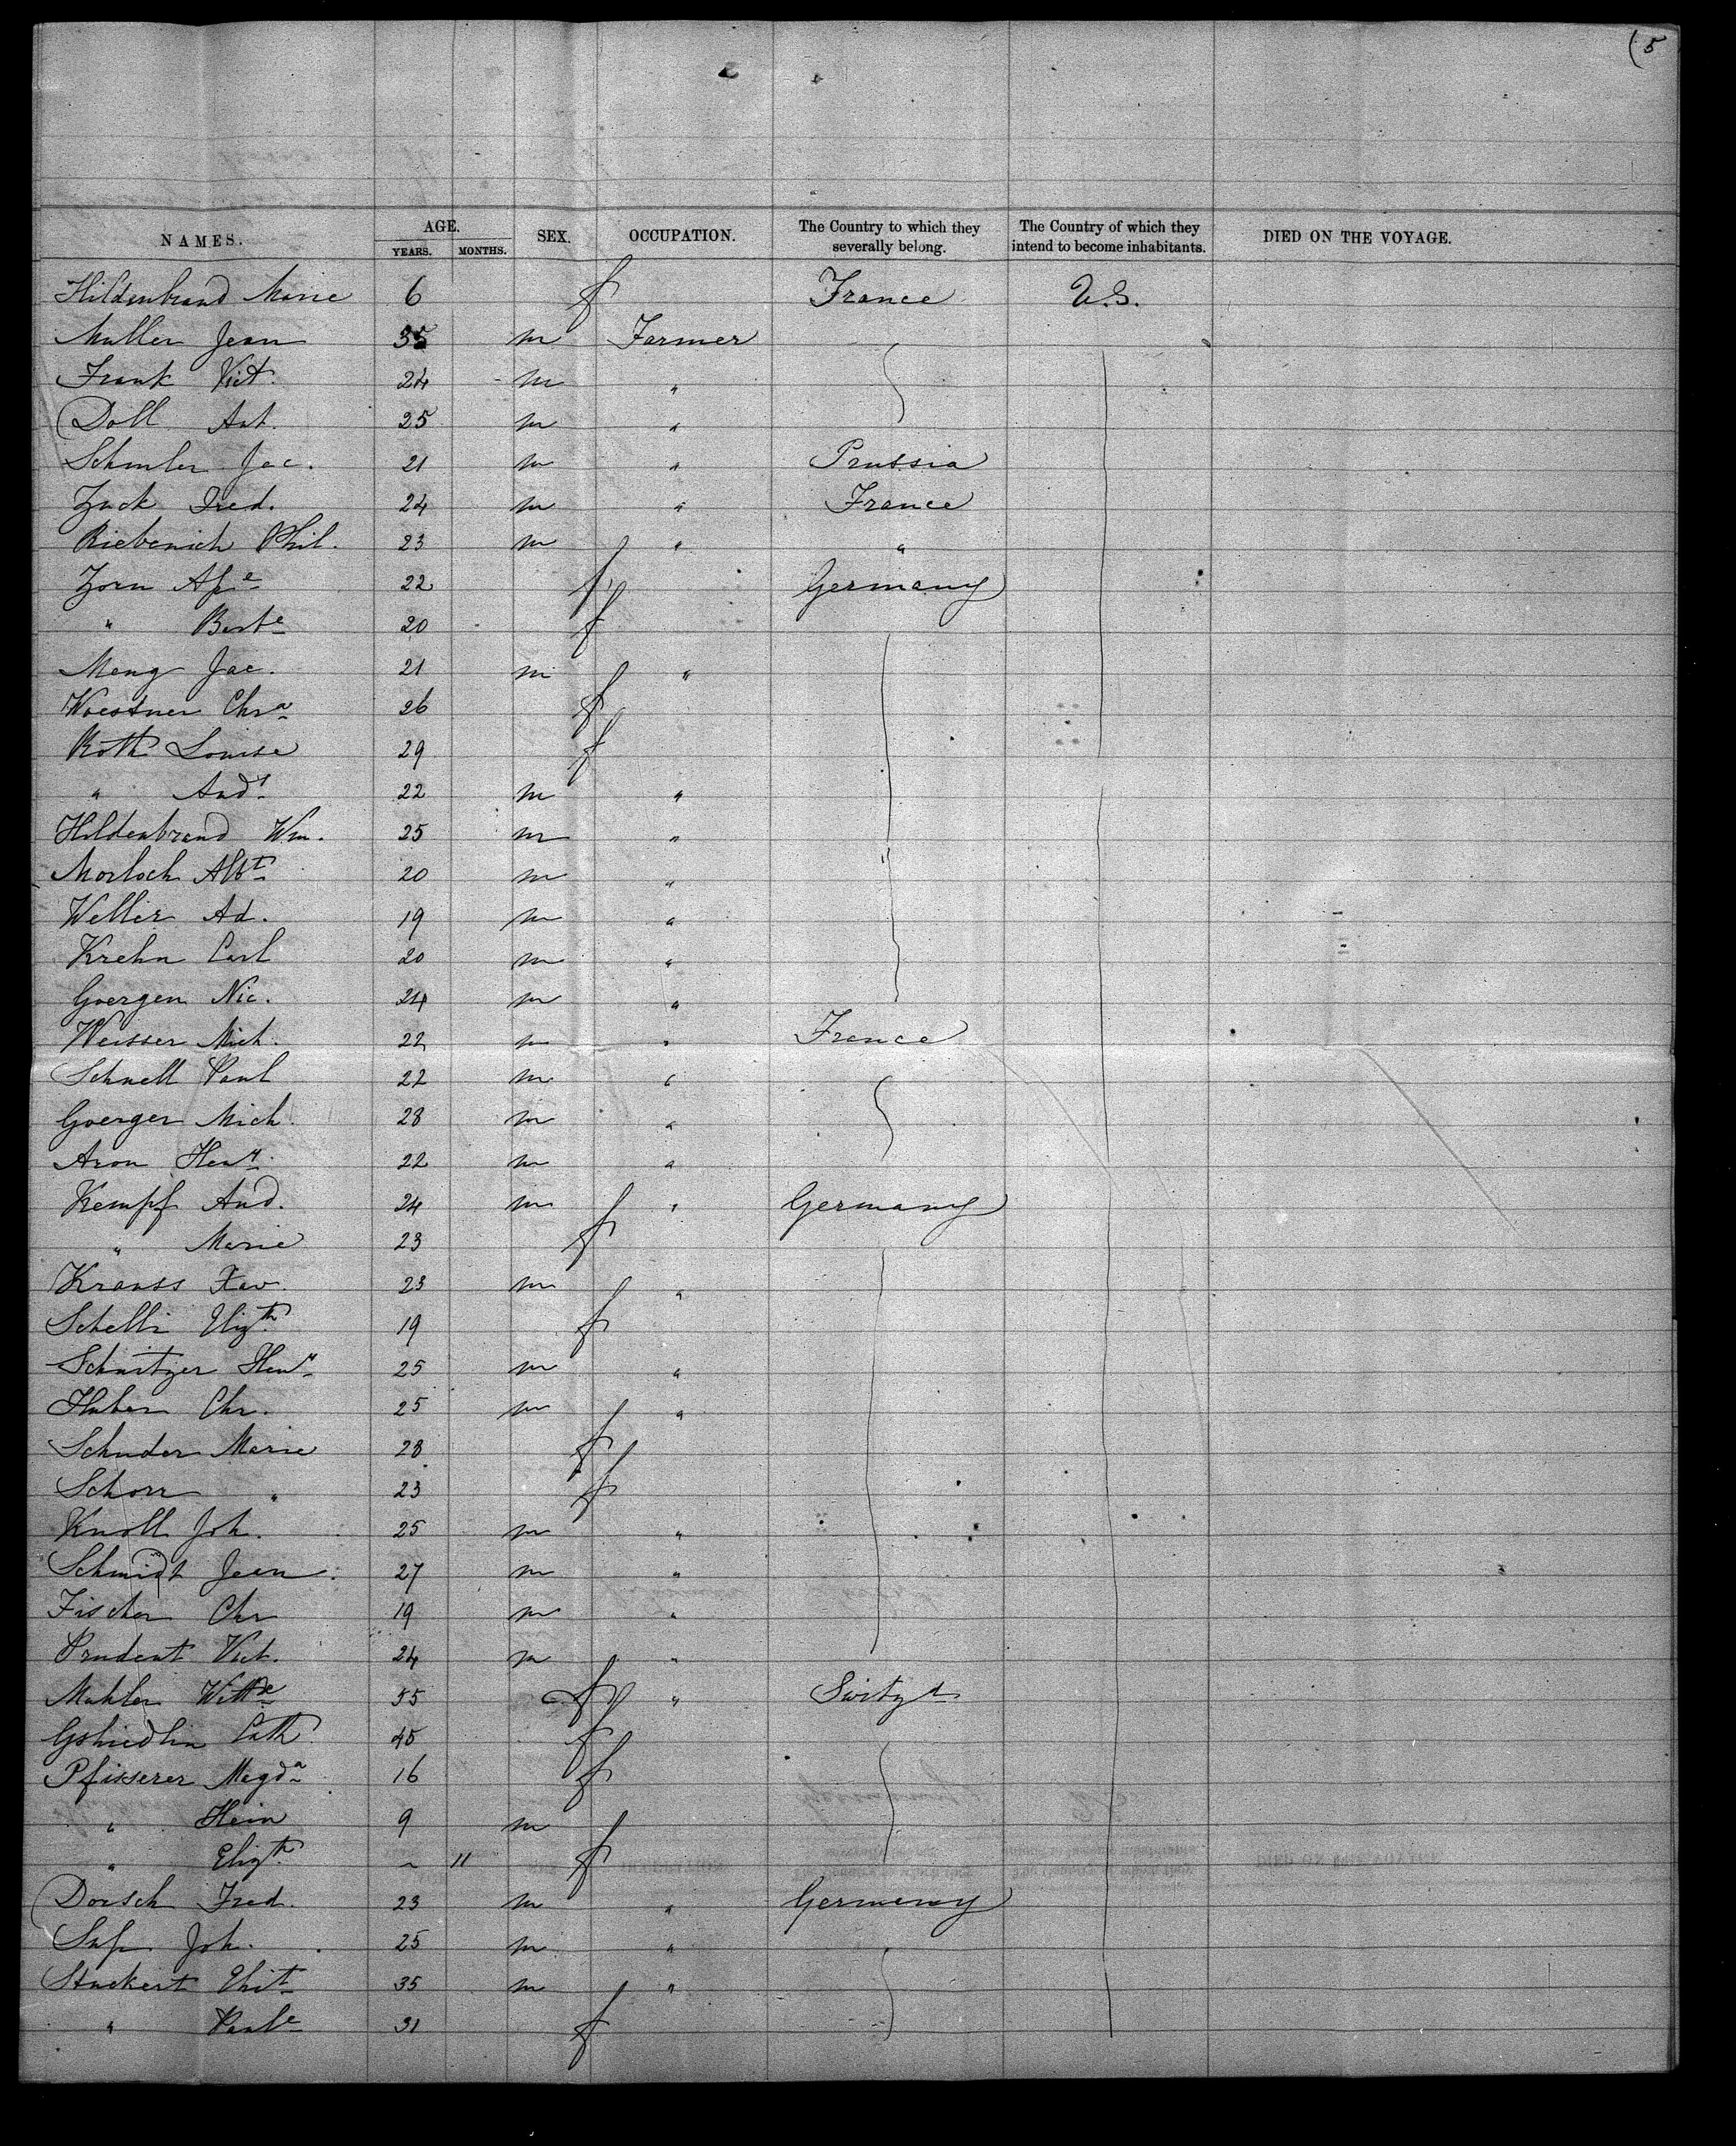 (5
NAMES. AGE. YEARS. MONTHS. SEX. OCCUPATION. The Country to which they severally belong. The Country of which they intend to become inhabitants. DIED ON THE VOYAGE.
Hildenbrand Marie 6 f France U.S.
Muller Jean 35 m Farmer
Frank Vict. 24 m "
Doll Ant. 25 m "
Schmler Jac. 21 m " Prussia
Zuck Fred. 24 m " France
Riebenich Phil. 23 m " "
Zorn 22 f Germany
" Berte 20 f
Meng Jac. 21 m "
Woestner Chra 26 f
Roth Louise 29 f
" And 22 m "
Hildenbrand Wm. 25 m "
Morloch Albt 20 m "
Weller Ad. 19 m "
Krehn Carl 20 m "
Goergen Nic. 24 m "
Weisser Mich. 22 m " France
Schnell Paul 22 m "
Goerger Mich. 28 m "
Aron Heny 22 m "
Kempf And. 24 m " Germany
" Marie 23 f
Krauss Xav. 23 m "
Schelli Elizth 19 f
Schnitzer Heny 25 m "
Huber Chr. 25 m "
Schuder Marie 28 f
Schorr " 23 f
Knoll Joh. 25 m "
Schmidt Jean 27 m "
Fischer Chr 19 m "
Prudent Vict. 24 m "
Mahler 55 f " Switzd
Gshiedlin Cath. 45 f
Pfisserer Magda 16 f
" Hein 9 m
" Elizth 11 f
Dorsch Fred. 23 m " Germany
Joh. 25 m "
Stuckert 35 m "
" Paule 31 f